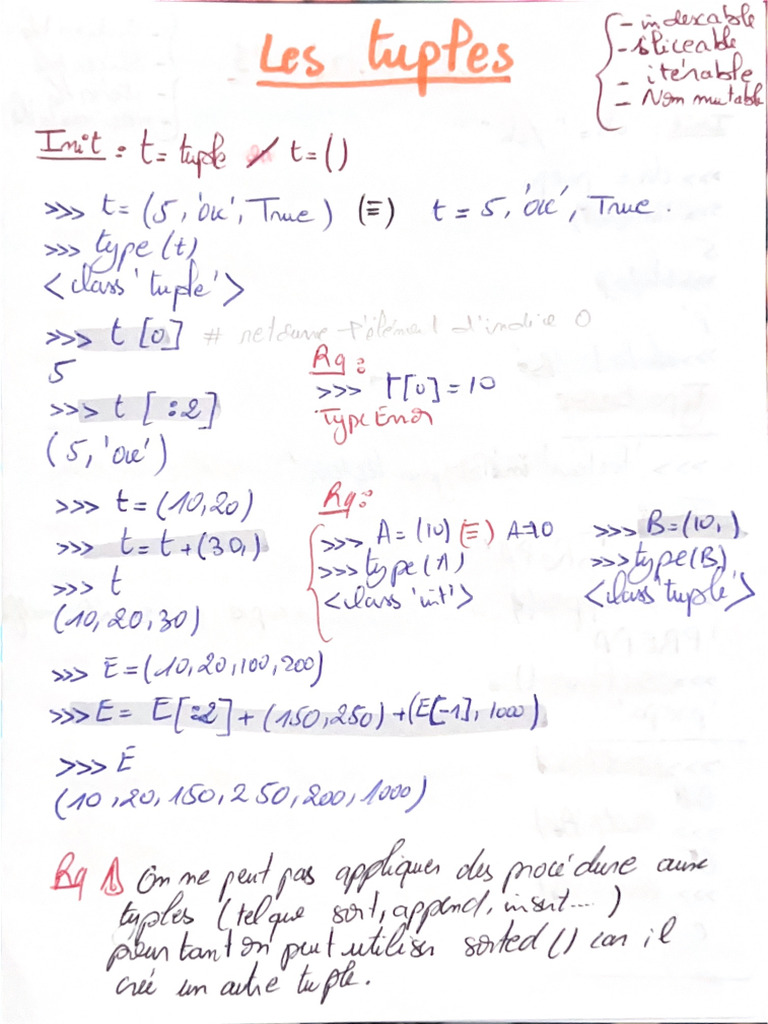 Les tuples
- indexable
- sliceable
- itérable
- Non mutable
Init : t= tuple / t=()
>>> t= (5,'ok',True) (≡) t = 5,'ok', True.
>>> type (t)
<class 'tuple'>
>>> t [0] # retourne l'élément d'indice 0
5
>>> t [ :2]
(5,'ok')
Rq :
>>> T[0] = 10
Type Error
>>> t=(10,20)
>>> t=t+(30,)
>>> t
(10,20,30)
Rq :
>>> A= (10) (≡) A=10
>>> type (A)
<class 'int'>
>>> B=(10,)
>>> type(B)
<class 'tuple'>
>>> E=(10,20,100,200)
>>> E= E[:2]+(150,250)+(E[-1],1000)
>>> E
(10,20,150,250,200,1000)
Rq On ne peut pas appliquer des procédure aux
tuples (tel que sort, append, insert....)
pour tant on peut utiliser sorted () car il
crée un autre tuple.